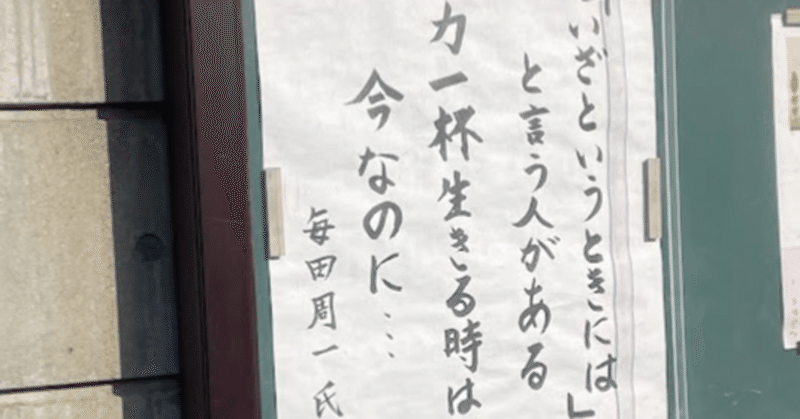 「いざというときには」
と言う人がある
力一杯生きる時は
今なのに…
毎田周一氏